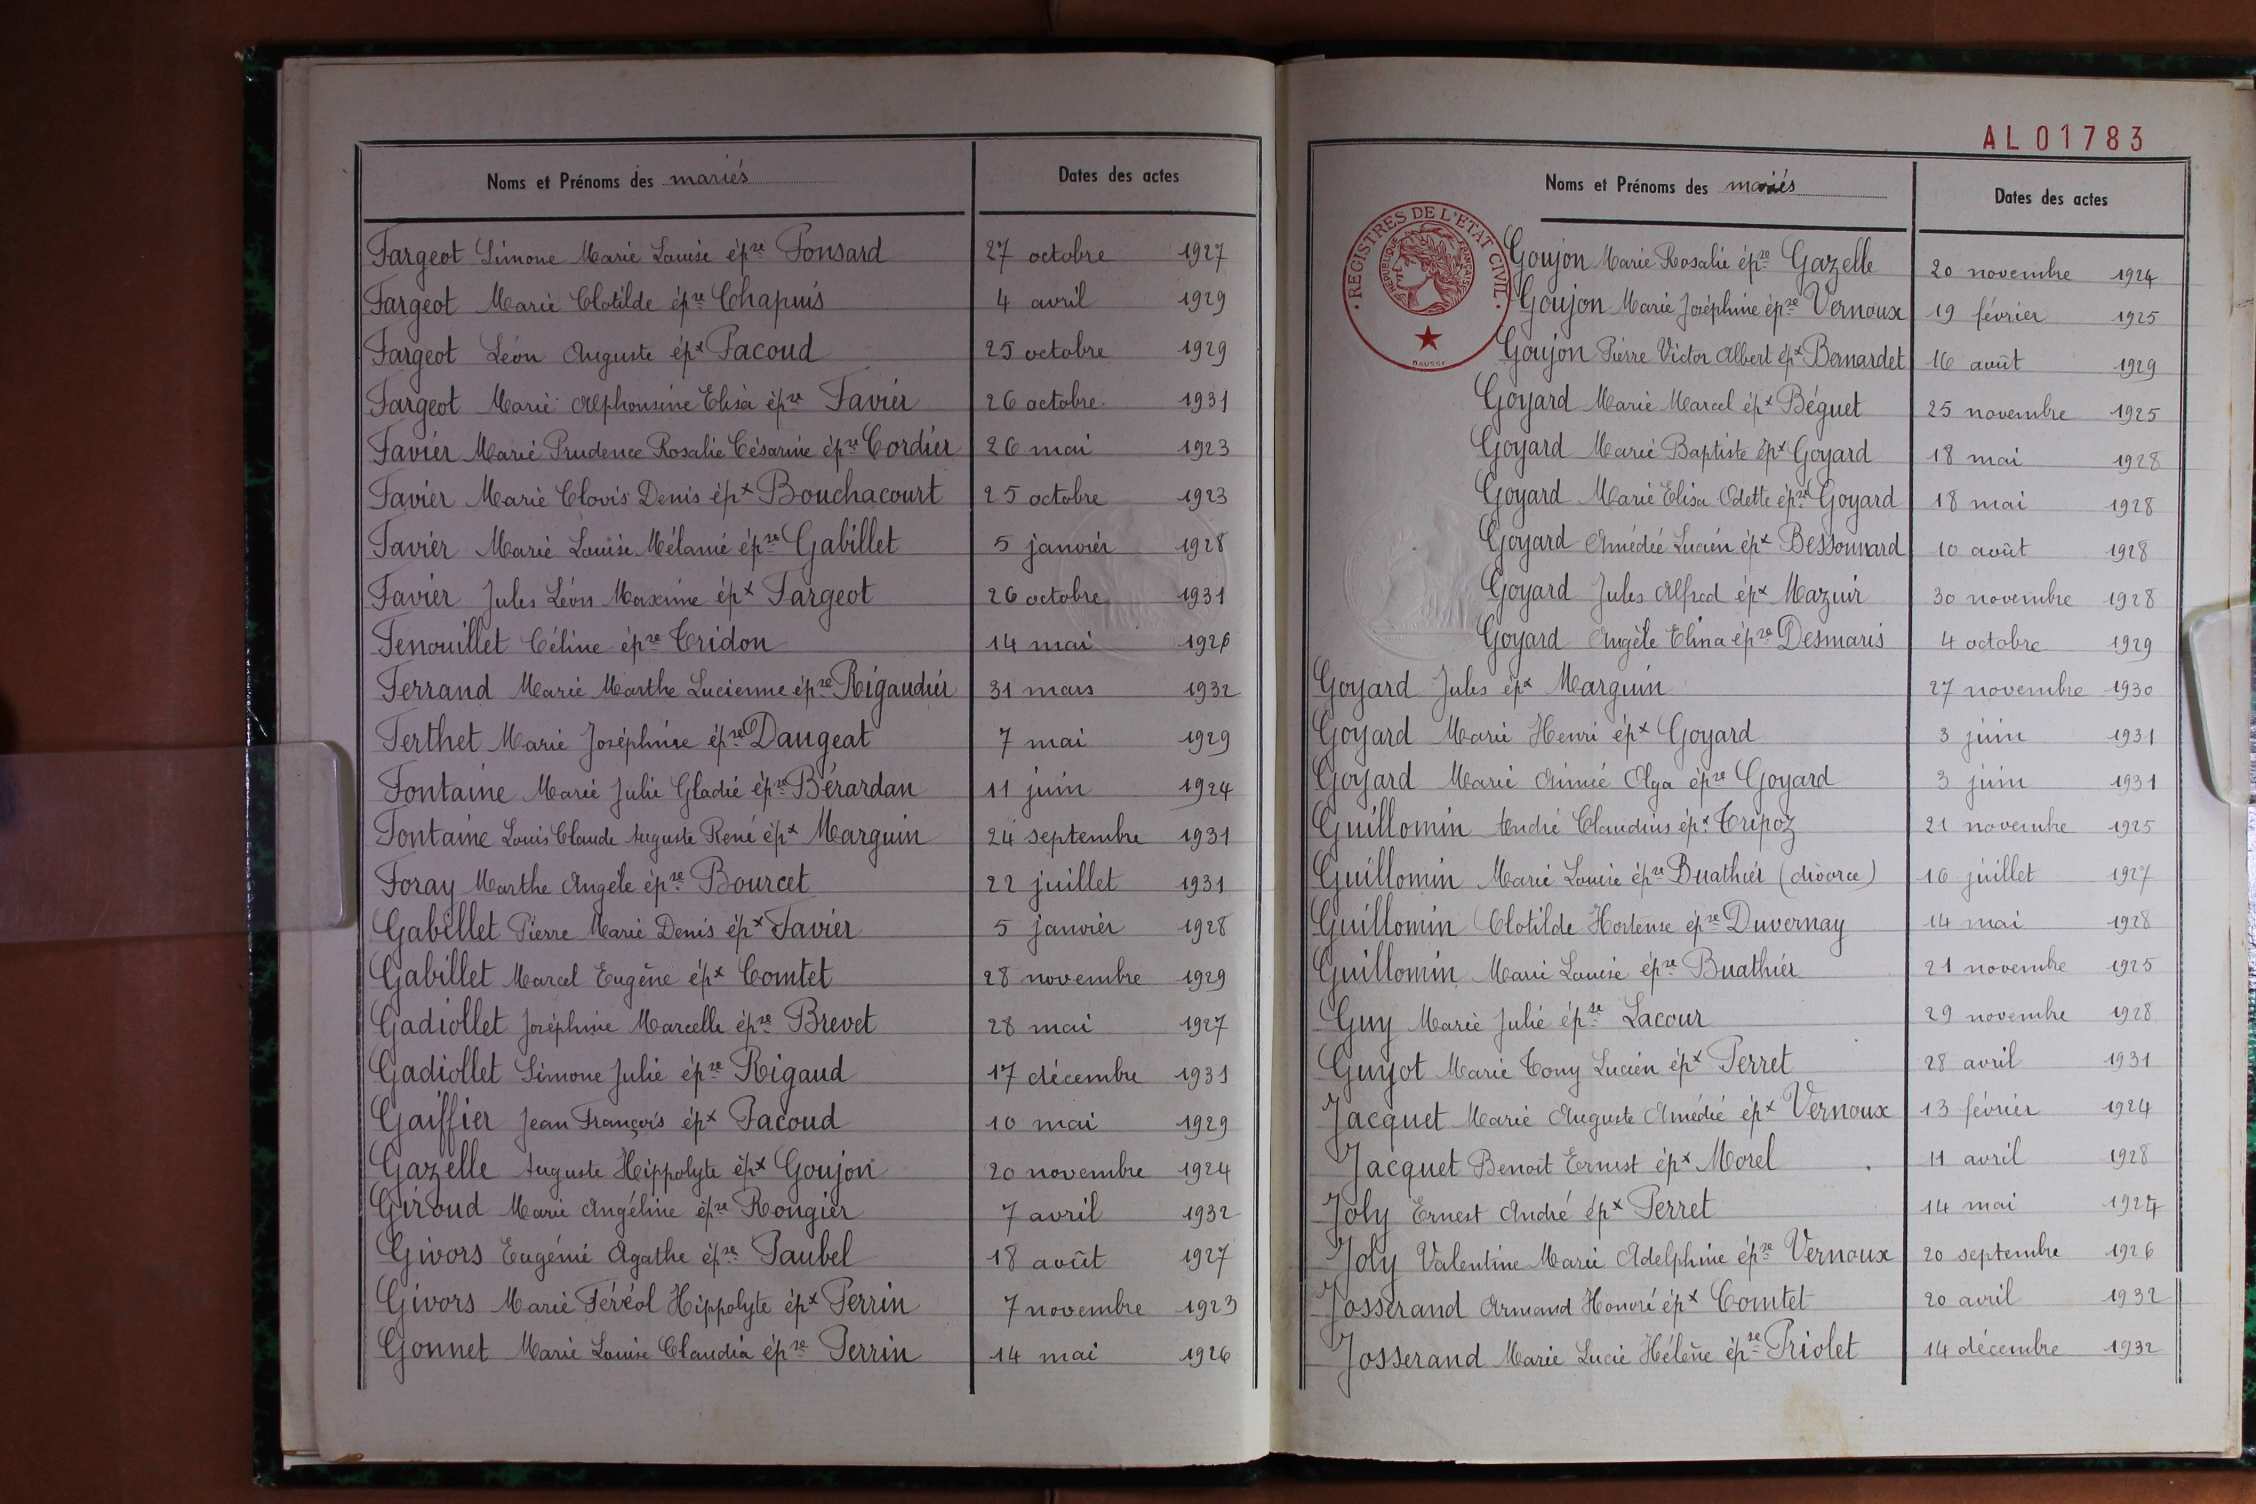 Noms et Prénoms des mariés Dates des actes
Fargeot Simone Marie Louise épse Ponsard 27 octobre 1927
Fargeot Marie Clotilde épse Chapuis 4 avril 1929
Fargeot Léon Auguste épx Pacoud 25 octobre 1929
Fargeot Marie Alphonsine Elisa épse Favier 26 octobre 1931
Favier Marie Prudence Rosalie Césarine épse Cordier 26 mai 1923
Favier Marie Clovis Denis épx Bouchacourt 25 octobre 1923
Favier Marie Louise Mélanie épse Gabillet 5 janvier 1928
Favier Jules Léon Maxime épx Fargeot 26 octobre 1931
Fenouillet Céline épse Tridon 14 mai 1926
Ferrand Marie Marthe Lucienne épse Rigaudier 31 mars 1932
Ferthet Marie Joséphine épse Daugeat 7 mai 1929
Fontaine Marie Julie Gladie épse Bérardan 11 juin 1924
Fontaine Louis Claude Auguste René épx Marguin 24 septembre 1931
Foray Marthe Angèle épse Bourcet 22 juillet 1931
Gabillet Pierre Marie Denis épx Favier 5 janvier 1928
Gabillet Marcel Eugène épx Comtet 28 novembre 1929
Gadiollet Joséphine Marcelle épse Brevet 28 mai 1927
Gadiollet Simone Julie épse Rigaud 17 décembre 1931
Gaiffier Jean François épx Pacoud 10 mai 1929
Gazelle Auguste Hippolyte épx Goujon 20 novembre 1924
Giroud Marie Angéline épse Rongier 7 avril 1932
Givors Eugénie Agathe épse Paubel 18 août 1927
Givors Marie Féréol Hippolyte épx Perrin 7 novembre 1923
Gonnet Marie Louise Claudia épse Perrin 14 mai 1926
AL01783
Noms et Prénoms des mariés Dates des actes
REGISTRES DE L'ETAT CIVIL
REPUBLIQUE FRANCAISE
Goujon Marie Rosalie épse Gazelle 20 novembre 1924
Goujon Marie Joséphine épse Vernoux 19 février 1925
Goujon Pierre Victor Albert épx Bernardet 16 août 1929
Goyard Marie Marcel épx Béguet 25 novembre 1925
Goyard Marie Baptiste épx Goyard 18 mai 1928
Goyard Marie Elisa Odette épse Goyard 18 mai 1928
Goyard Amédée Lucien épx Bessonnard 10 août 1928
Goyard Jules Alfred épx Mazuir 30 novembre 1928
Goyard Angèle Elina épse Desmaris 4 octobre 1929
Goyard Jules épx Marguin 27 novembre 1930
Goyard Marie Henri épx Goyard 3 juin 1931
Goyard Marie Aimée Olga épse Goyard 3 juin 1931
Guillomin André Claudius épx Tripoz 21 novembre 1925
Guillomin Marie Louise épse Buathier (divorce) 16 juillet 1927
Guillomin Clotilde Hortense épse Duvernay 14 mai 1928
Guillomin Marie Louise épse Buathier 21 novembre 1925
Guy Marie Julie épse Lacour 29 novembre 1928
Guyot Marie Tony Lucien épx Perret 28 avril 1931
Jacquet Marie Auguste Amédée épx Vernoux 13 février 1924
Jacquet Benoit Ernest épx Morel 11 avril 1928
Joly Ernest André épx Perret 14 mai 1927
Joly Valentine Marie Adelphine épse Vernoux 20 septembre 1926
Josserand Armand Honoré épx Comtet 20 avril 1932
Josserand Marie Lucie Hélène épse Priolet 14 décembre 1932